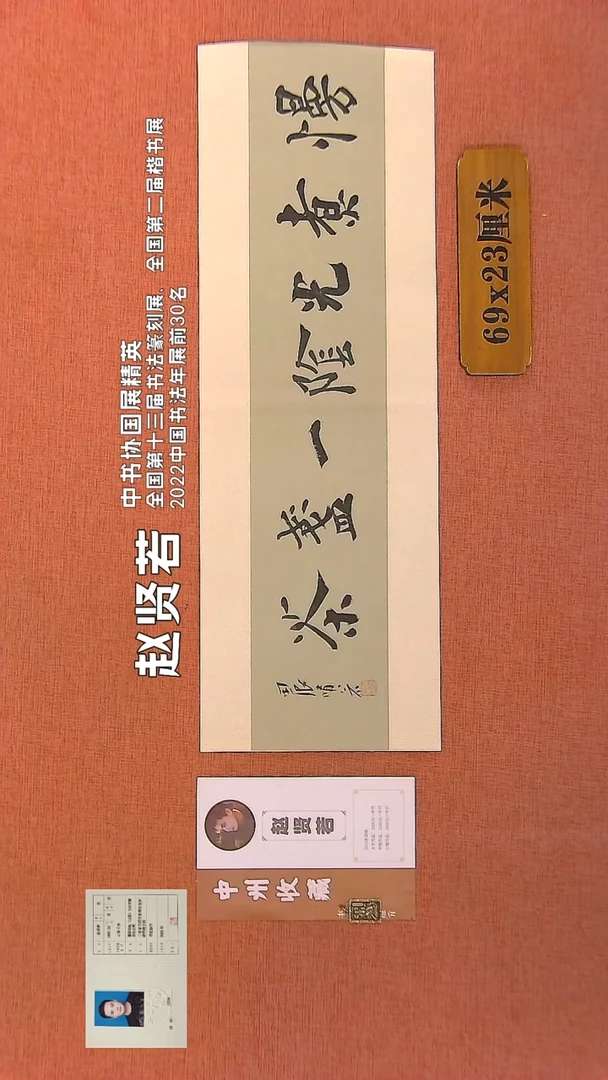 赵贤若
中书协国展精英
全国第十三届书法篆刻展、全国第二届楷书展
2022中国书法年展前30名
慢煮光陰一盞茶
69x23厘米
赵贤若
中州收藏